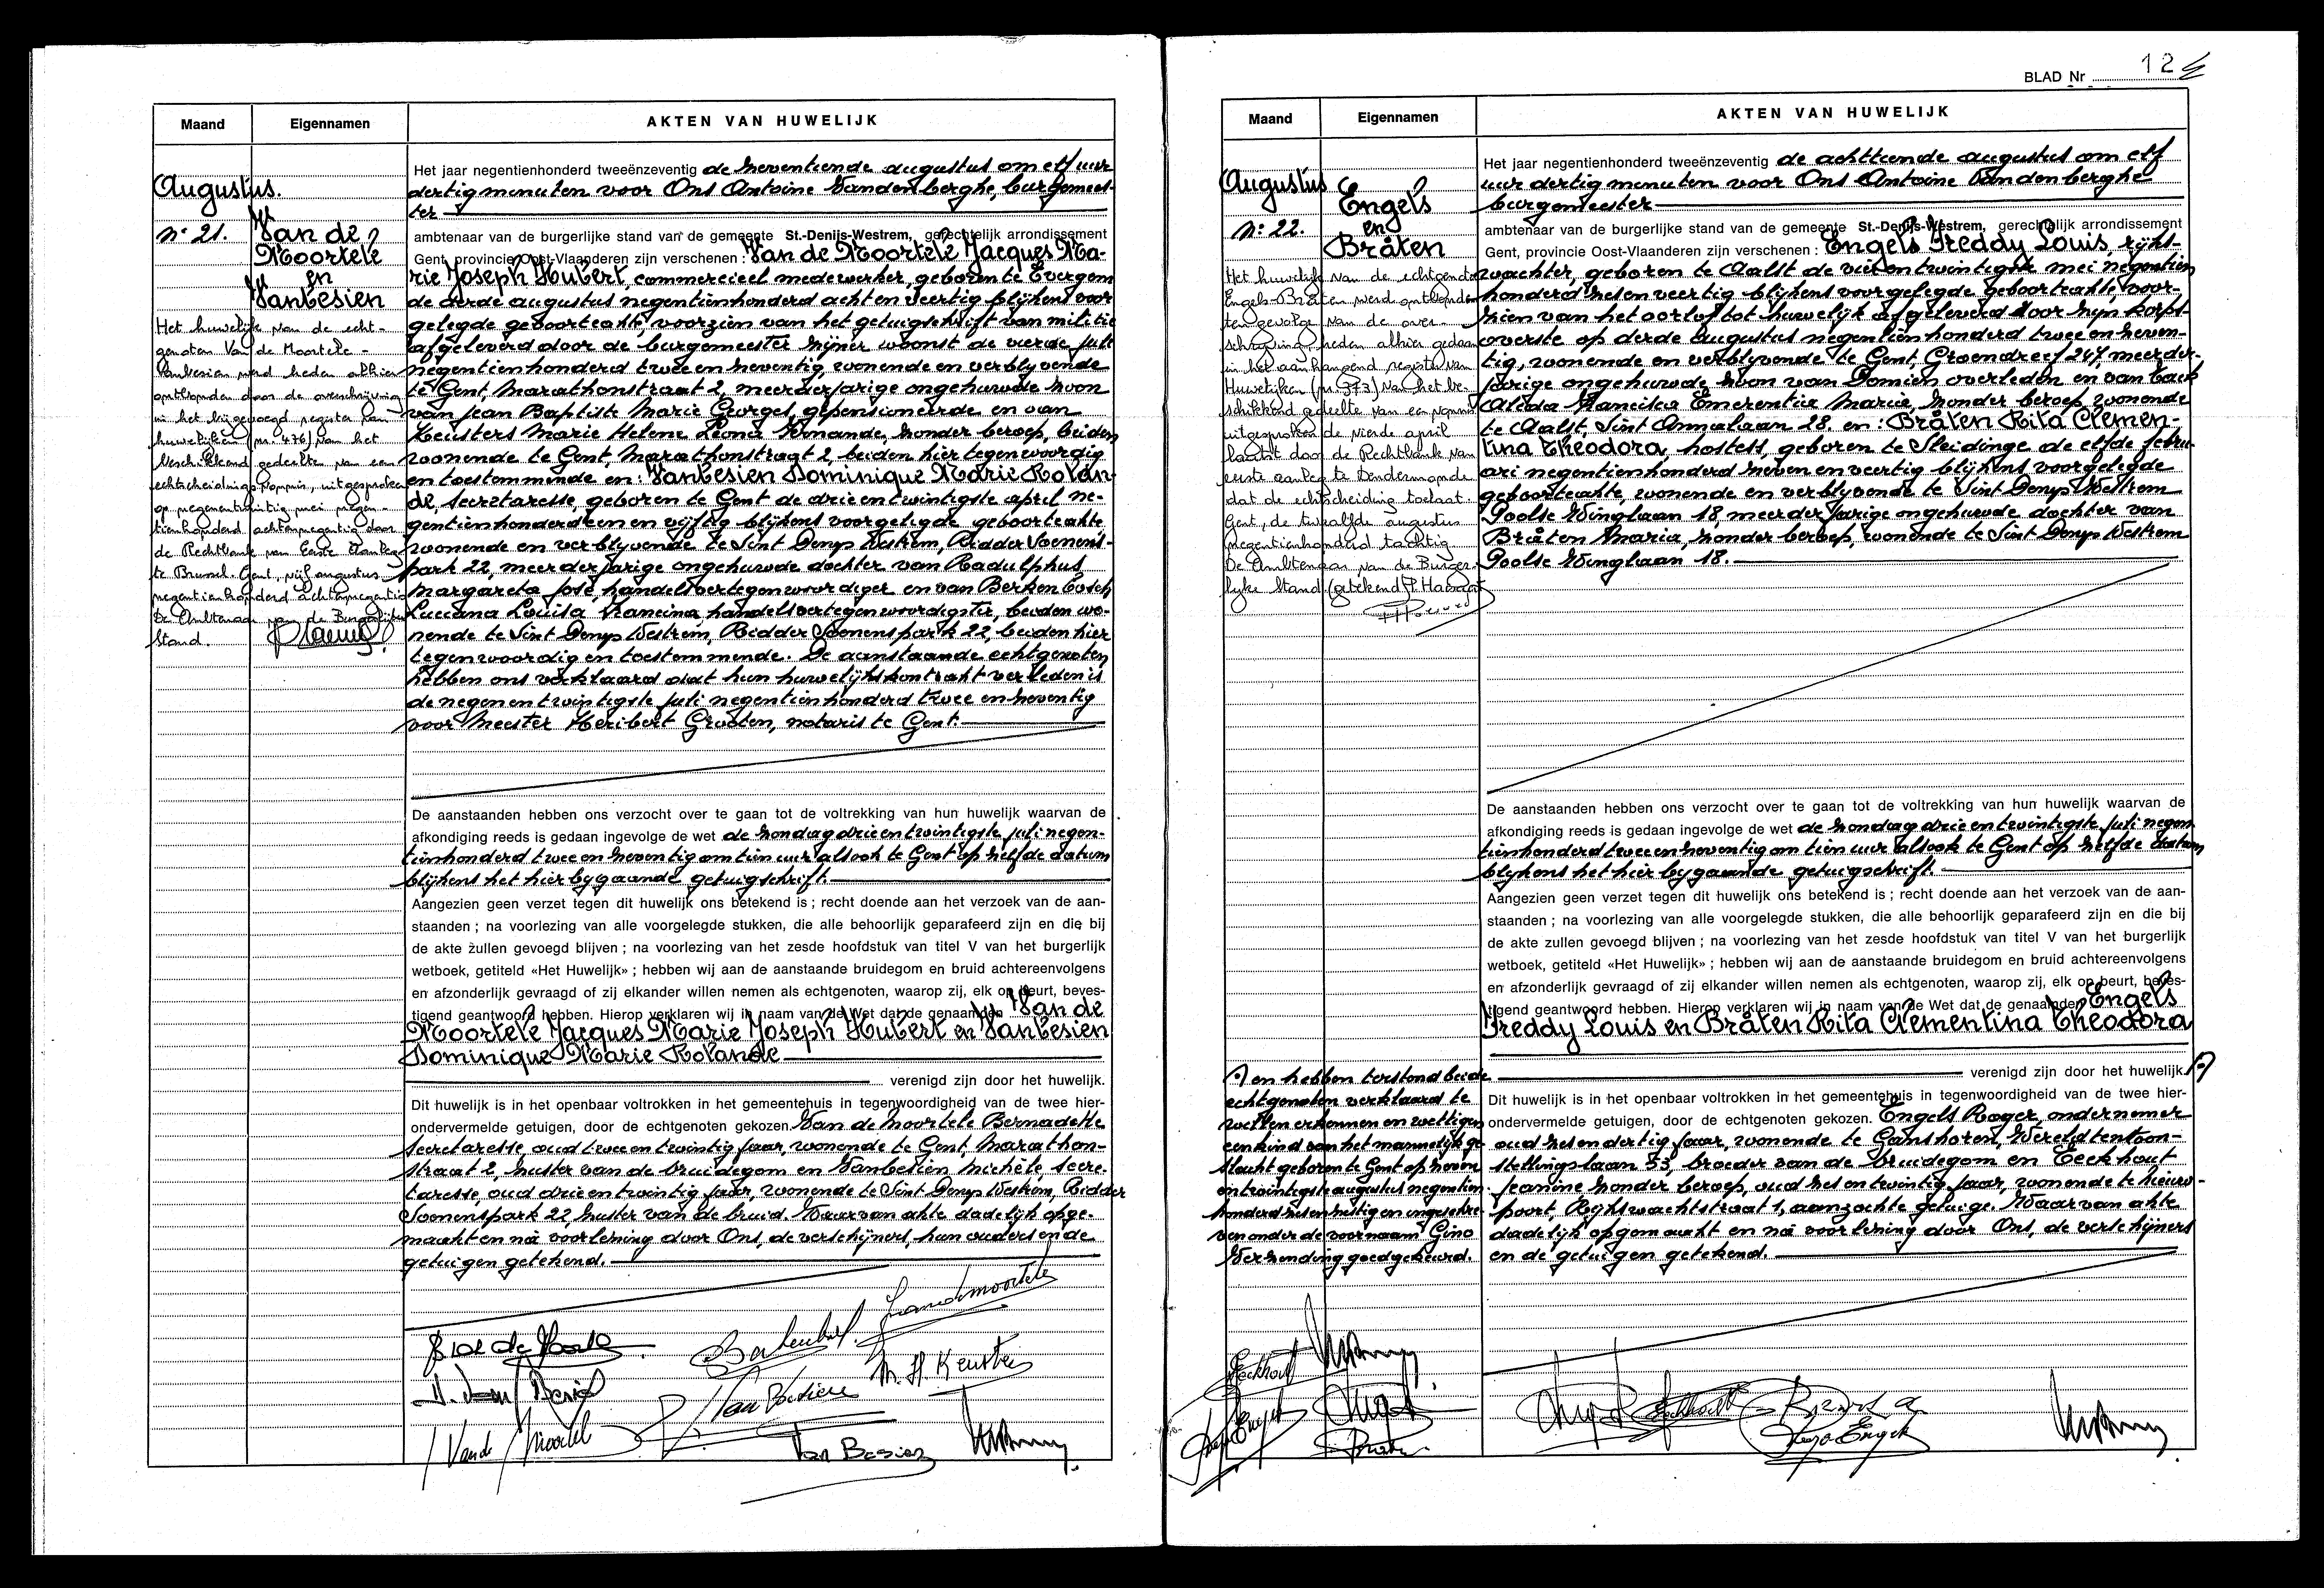 Maand
Eigennamen
AKTEN VAN HUWELIJK
Augustus.
n° 21.
Van de
Moortele
en
Vanbesien
Het huwelijk van de echt-
genoten Van de Moortele -
Vanbesien werd heden alhier
ontbonden door de overschrijving
in het bijgevoegd register van
huwelijken (nr 476) van het
beschikkend gedeelte van een
echtscheidingsvonnis, uitgesproken
op negenentwintig mei negen-
tienhonderd achtennegentig door
de Rechtbank van Eerste Aanleg
te Brussel. Gent, vijf augustus
negentienhonderd achtennegentig
De Ambtenaar van de Burgerlijke
Stand.
Het jaar negentienhonderd tweeënzeventig de zeventiende augustus om elf uur
dertig minuten voor Ons Antoine Vandenberghe, burgemees-
ter
ambtenaar van de burgerlijke stand van de gemeente St.-Denijs-Westrem, gerechtelijk arrondissement
Gent, provincie Oost-Vlaanderen zijn verschenen : Van de Moortele Jacques Ma-
rie Joseph Hubert, commercieel medewerker, geboren te Evergem
de derde augustus negentienhonderd acht en veertig blijkens voor
gelegde geboorteakte, voorzien van het getuigschrift van militie
afgeleverd door de burgemeester zijner woonst de vierde juli
negentienhonderd twee en zeventig, wonende en verblyvende
te Gent, Marathonstraat 2, meerderjarige ongehuwde zoon
van Jean Baptiste Marie Georges, gepensioneerde en van
Keusters Marie Helene Leona Fernande, zonder beroep, beiden
wonende te Gent, Marathonstraat 2, beiden hier tegenwoordig
en toestemmende en : Vanbesien Dominique Marie Rolan-
de, secretaresse, geboren te Gent de drie en twintigste april ne-
gentienhonderd een en vijftig blijkens voorgelegde geboorteakte
wonende en verblyvende te Sint Denys Westrem, Ridder Soenens-
park 22, meerderjarige ongehuwde dochter van Radulphus
Margareta José, handelsvertegenwoordiger en van Berkenbosch
Luciana Louisa Francina handelsvertegenwoordigster, beiden wo-
nende te Sint Denys Westrem, Ridder Soenenspark 22, beiden hier
tegenwoordig en toestemmende. De aanstaande echtgenoten
hebben ons verklaard dat hun huwelijkskontrakt verleden is
de negen en twintigste juli negentienhonderd twee en zeventig
voor Meester Heribert Grooten, notaris te Gent.
De aanstaanden hebben ons verzocht over te gaan tot de voltrekking van hun huwelijk waarvan de
afkondiging reeds is gedaan ingevolge de wet de zondag drie en twintigste juli negen-
tienhonderd twee en zeventig om tien uur alsook te Gent op zelfde datum
blijkens het hier bygaande getuigschrift.
Aangezien geen verzet tegen dit huwelijk ons betekend is ; recht doende aan het verzoek van de aan-
staanden ; na voorlezing van alle voorgelegde stukken, die alle behoorlijk geparafeerd zijn en die bij
de akte zullen gevoegd blijven ; na voorlezing van het zesde hoofdstuk van titel V van het burgerlijk
wetboek, getiteld «Het Huwelijk» ; hebben wij aan de aanstaande bruidegom en bruid achtereenvolgens
en afzonderlijk gevraagd of zij elkander willen nemen als echtgenoten, waarop zij, elk op beurt, beves-
tigend geantwoord hebben. Hierop verklaren wij in naam van de Wet dat de genaamden Van de
Moortele Jacques Marie Joseph Hubert en Vanbesien
Dominique Marie Rolande
verenigd zijn door het huwelijk.
Dit huwelijk is in het openbaar voltrokken in het gemeentehuis in tegenwoordigheid van de twee hier-
ondervermelde getuigen, door de echtgenoten gekozen. Van de Moortele Bernadette
secretaresse, oud twee en twintig jaar, wonende te Gent, Marathon-
straat 2, zuster van de bruidegom en Vanbesien Michèle, secre-
taresse, oud drie en twintig jaar, wonende te Sint Denys Westrem, Ridder
Soenenspark 22, zuster van de bruid. Waarvan akte dadelijk opge-
maakt en na voorlezing door Ons, de verschijners, hun ouders en de
getuigen getekend.
M. H. Keusters
Van Besien
BLAD Nr 124
Maand
Eigennamen
AKTEN VAN HUWELIJK
Augustus
n° 22.
Engels
en
Bråten
Het huwelijk van de echtgenoten
Engels-Bråten werd ontbonden
ten gevolge van de over-
schrijving heden alhier gedaan
in het aanhangend register van
Huwelijken (nr 373) van het be-
schikkend gedeelte van een vonnis
uitgesproken de vierde april
laatst door de Rechtbank van
eerste aanleg te Dendermonde
dat de echtscheiding toelaat
Gent, de twaalfde augustus
negentienhonderd tachtig
De Ambtenaar van de Burger-
lijke Stand (getekend)
Het jaar negentienhonderd tweeënzeventig de achttiende augustus om elf
uur dertig minuten voor Ons Antoine Vandenberghe
burgemeester
ambtenaar van de burgerlijke stand van de gemeente St.-Denijs-Westrem, gerechtelijk arrondissement
Gent, provincie Oost-Vlaanderen zijn verschenen : Engels Freddy Louis, rijks-
wachter, geboren te Aalst de vier en twintigste mei negentien
honderd zes en veertig blijkens voorgelegde geboorteakte, voor-
zien van het oorlof tot huwelijk afgeleverd door zijn korps-
overste op derde augustus negentienhonderd twee en zeven-
tig, wonende en verblyvende te Gent, Groendreef 267, meerder-
jarige ongehuwde zoon van Domien overleden en van Cock
Alida Francisca Emerentia Maria, zonder beroep, wonende
te Aalst, Sint Annalaan 28, en : Bråten Rita Clemen-
tina Theodora, hostess, geboren te Sleidinge de elfde febru-
ari negentienhonderd zeven en veertig blijkens voorgelegde
geboorteakte, wonende en verblyvende te Sint Denys Westrem
Poolse Winglaan 18, meerderjarige ongehuwde dochter van
Bråten Maria, zonder beroep, wonende te Sint Denys Westrem
Poolse Winglaan 18.
De aanstaanden hebben ons verzocht over te gaan tot de voltrekking van hun huwelijk waarvan de
afkondiging reeds is gedaan ingevolge de wet de zondag drie en twintigste juli negen
tienhonderd twee en zeventig om tien uur alsook te Gent op zelfde datum
blijkens het hier bygaande getuigschrift.
Aangezien geen verzet tegen dit huwelijk ons betekend is ; recht doende aan het verzoek van de aan-
staanden ; na voorlezing van alle voorgelegde stukken, die alle behoorlijk geparafeerd zijn en die bij
de akte zullen gevoegd blijven ; na voorlezing van het zesde hoofdstuk van titel V van het burgerlijk
wetboek, getiteld «Het Huwelijk» ; hebben wij aan de aanstaande bruidegom en bruid achtereenvolgens
en afzonderlijk gevraagd of zij elkander willen nemen als echtgenoten, waarop zij, elk op beurt, beves-
tigend geantwoord hebben. Hierop verklaren wij in naam van de Wet dat de genaamden Engels
Freddy Louis en Bråten Rita Clementina Theodora
verenigd zijn door het huwelijk.
en hebben terstond beide
echtgenoten verklaard te
willen erkennen en wettigen
een kind van het mannelijk ge-
slacht geboren te Gent op zeven
en twintigste augustus negentien
honderd zes en zestig en ingeschre-
ven onder de voornaam Gino
Verzending goedgekeurd.
Dit huwelijk is in het openbaar voltrokken in het gemeentehuis in tegenwoordigheid van de twee hier-
ondervermelde getuigen, door de echtgenoten gekozen. Engels Roger, ondernemer
oud zes en dertig jaar, wonende te Ganshoren, Wereldtentoon-
stellingslaan 53, broeder van de bruidegom en Eeckhout
Jeanine zonder beroep, oud zes en twintig jaar, wonende te Nieuw-
poort, Rijkswachtstraat 1, aanzochte getuige. Waarvan akte
dadelijk opgemaakt en na voorlezing door Ons, de verschijners
en de getuigen getekend.
Eeckhout